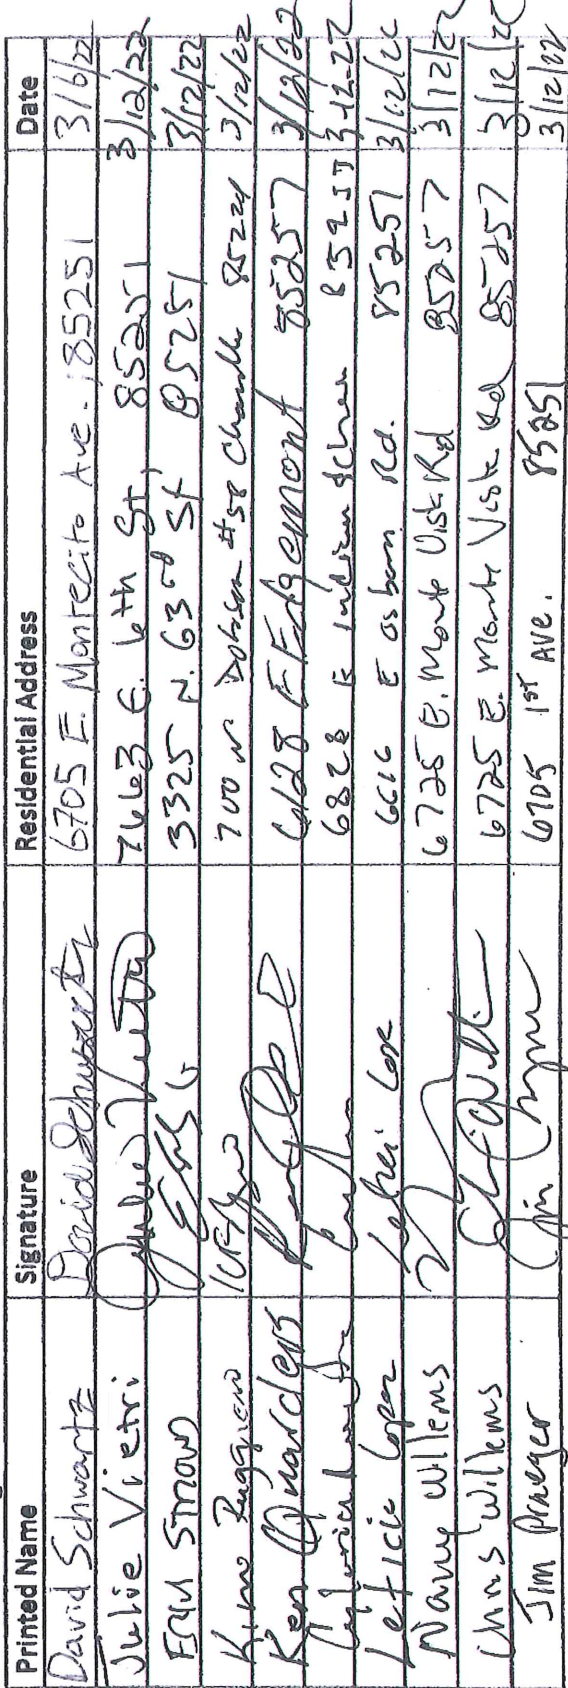 Printed Name Signature Residential Address Date
David Schwartz David Schwartz 6705 E. Montecito Ave. 85251 3/6/22
Julie Vietri Julie Vietri 7663 E. 6th St, 85251 3/12/22
3325 N. 63rd St 85251 3/12/22
Kimo Ruggiero 700 N Dobson #58 Chandler 85224 3/12/22
Ken 6128 E Edgemont 85257 3/12/22
6828 E indian School 3-12-22
Leticia Lopez 6616 E osborn Rd. 85251 3/12/22
Nancy Willems 6725 E. Monte Vista Rd 85257 3/12/22
Chris Willems 6725 E. Monte Vista Rd 85257 3/12/22
Jim Praeger 6705 1st AVE. 85251 3/12/22